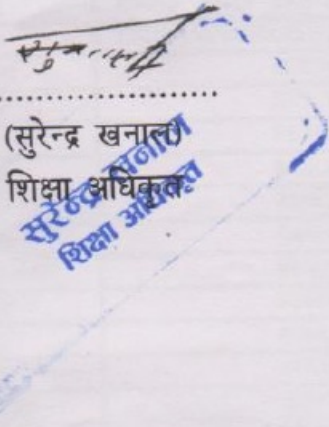 (सुरेन्द्र खनाल)
शिक्षा अधिकृत
सुरेन्द्र खनाल
शिक्षा अधिकृत